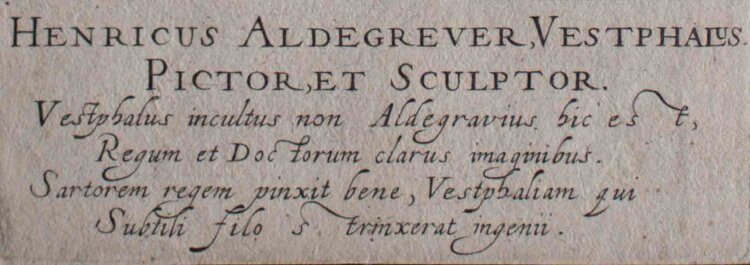 HENRICUS ALDEGREVER, VESTPHALUS.
PICTOR, ET SCULPTOR.
Vestphalus incultus non Aldegravius hic est,
Regum et Doctorum clarus imaginibus.
Sartorem regem pinxit bene, Vestphaliam qui
Subtili filo strinxerat ingenii.